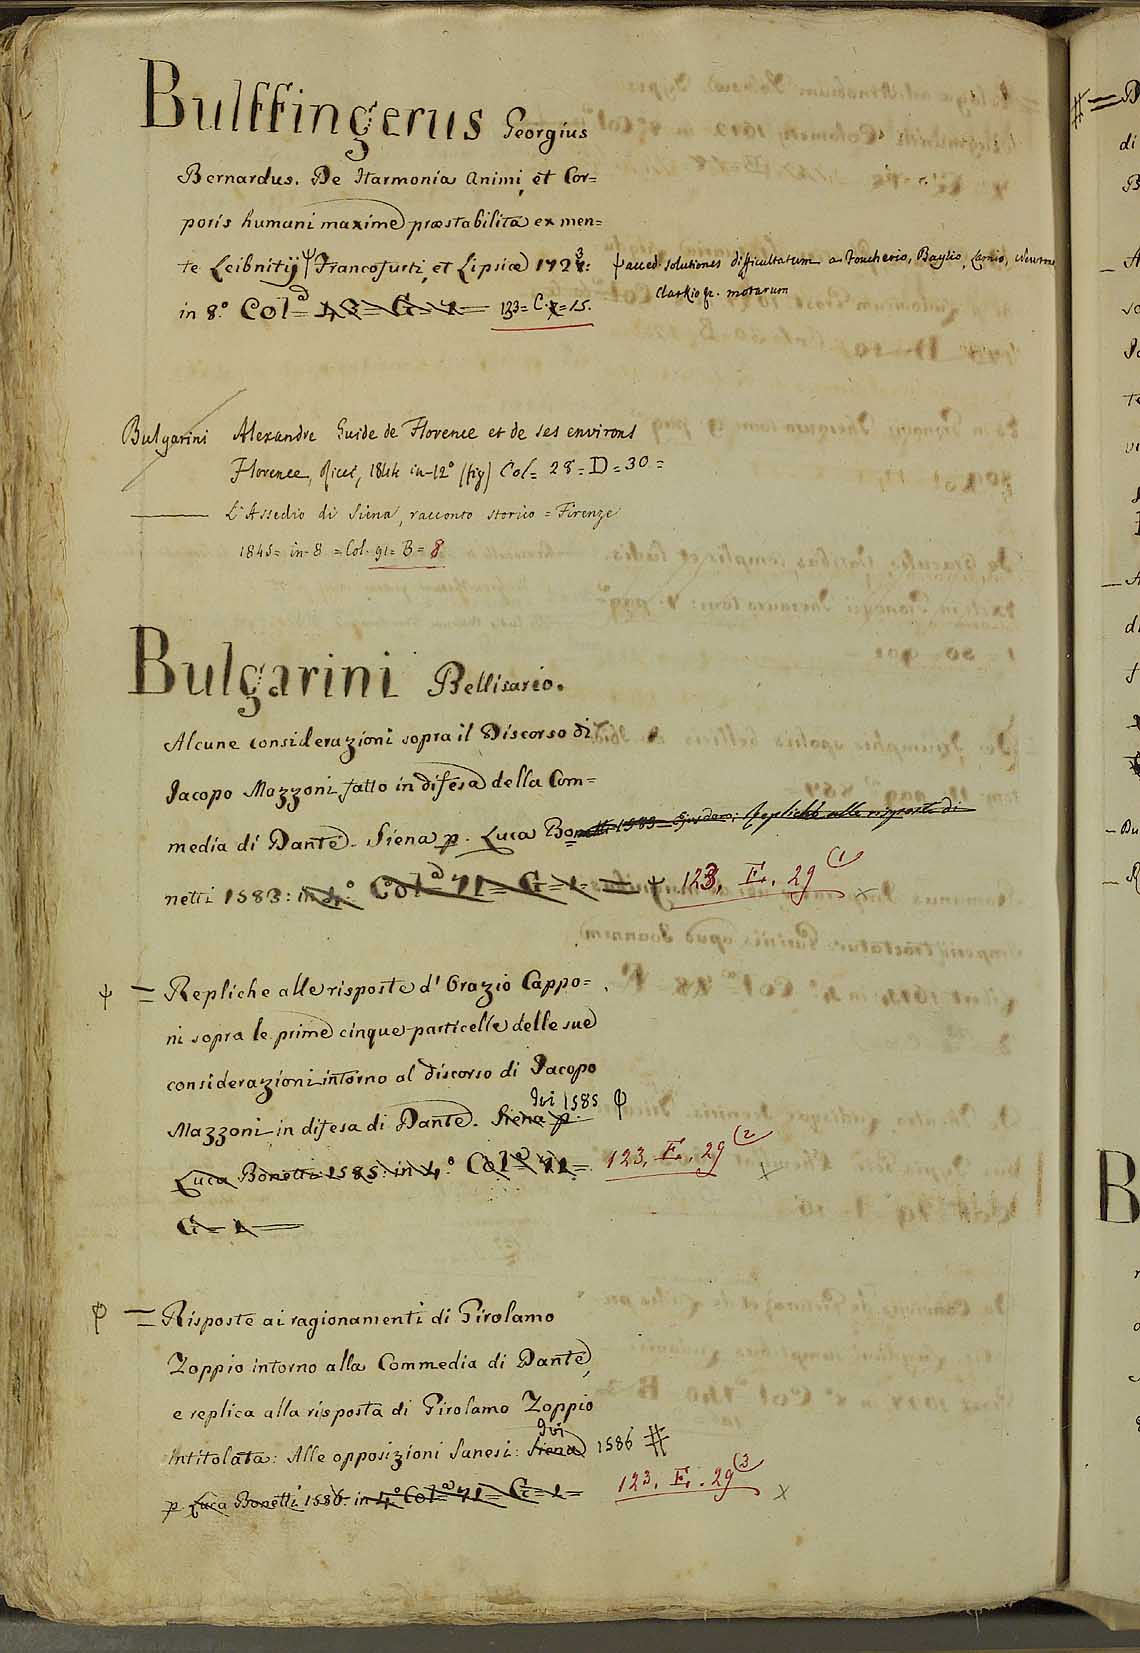 Bulffingerus Georgius
Bernardus. De Harmonia Animi, et Cor=
poris humani maxime præstabilita ex men=
te Leibnitij ψ Francofurti, et Lipsiæ 1723:
in 8.° Col.ª 48= G= 133= C. = 15.
ψ acced. solutiones difficultatum a Foucherio, Baylio, Lamio,
Clarkio
Bulgarini Alexandre Guide de Florence et de ses environs
Florence, Ricci, 1844 in-12° (fig) Col= 28= D= 30=
L'Assedio di Siena, racconto storico = Firenze
1845= in-8 = Col. 91= B= 8
Bulgarini Bellisario.
Alcune considerazioni sopra il Discorso di
Jacopo Mazzoni fatto in difesa della Com=
media di Dante. Siena p. Luca Bonetti 1583 Repliche alle risposte di
netti 1583: in 4.° Col.ª 71= G= 1= ψ 123. E. 29 (1
ψ = Repliche alle risposte d' Orazio Cappo=
ni sopra le prime cinque particelle delle sue
considerazioni intorno al discorso di Jacopo
Ivi 1585 φ
Mazzoni in difesa di Dante. Siena p.
Luca Bonetti 1585: in 4.° Col.ª 71= 123. E. 29 (2
G= 1
φ = Risposte ai ragionamenti di Girolamo
Zoppio intorno alla Commedia di Dante,
e replica alla risposta di Girolamo Zoppio
Ivi
Intitolata: Alle opposizioni Sanesi: Siena 1586 #
p. Luca Bonetti 1586. in 4.° Col.ª 71= G= 1= 123. E. 29 (3